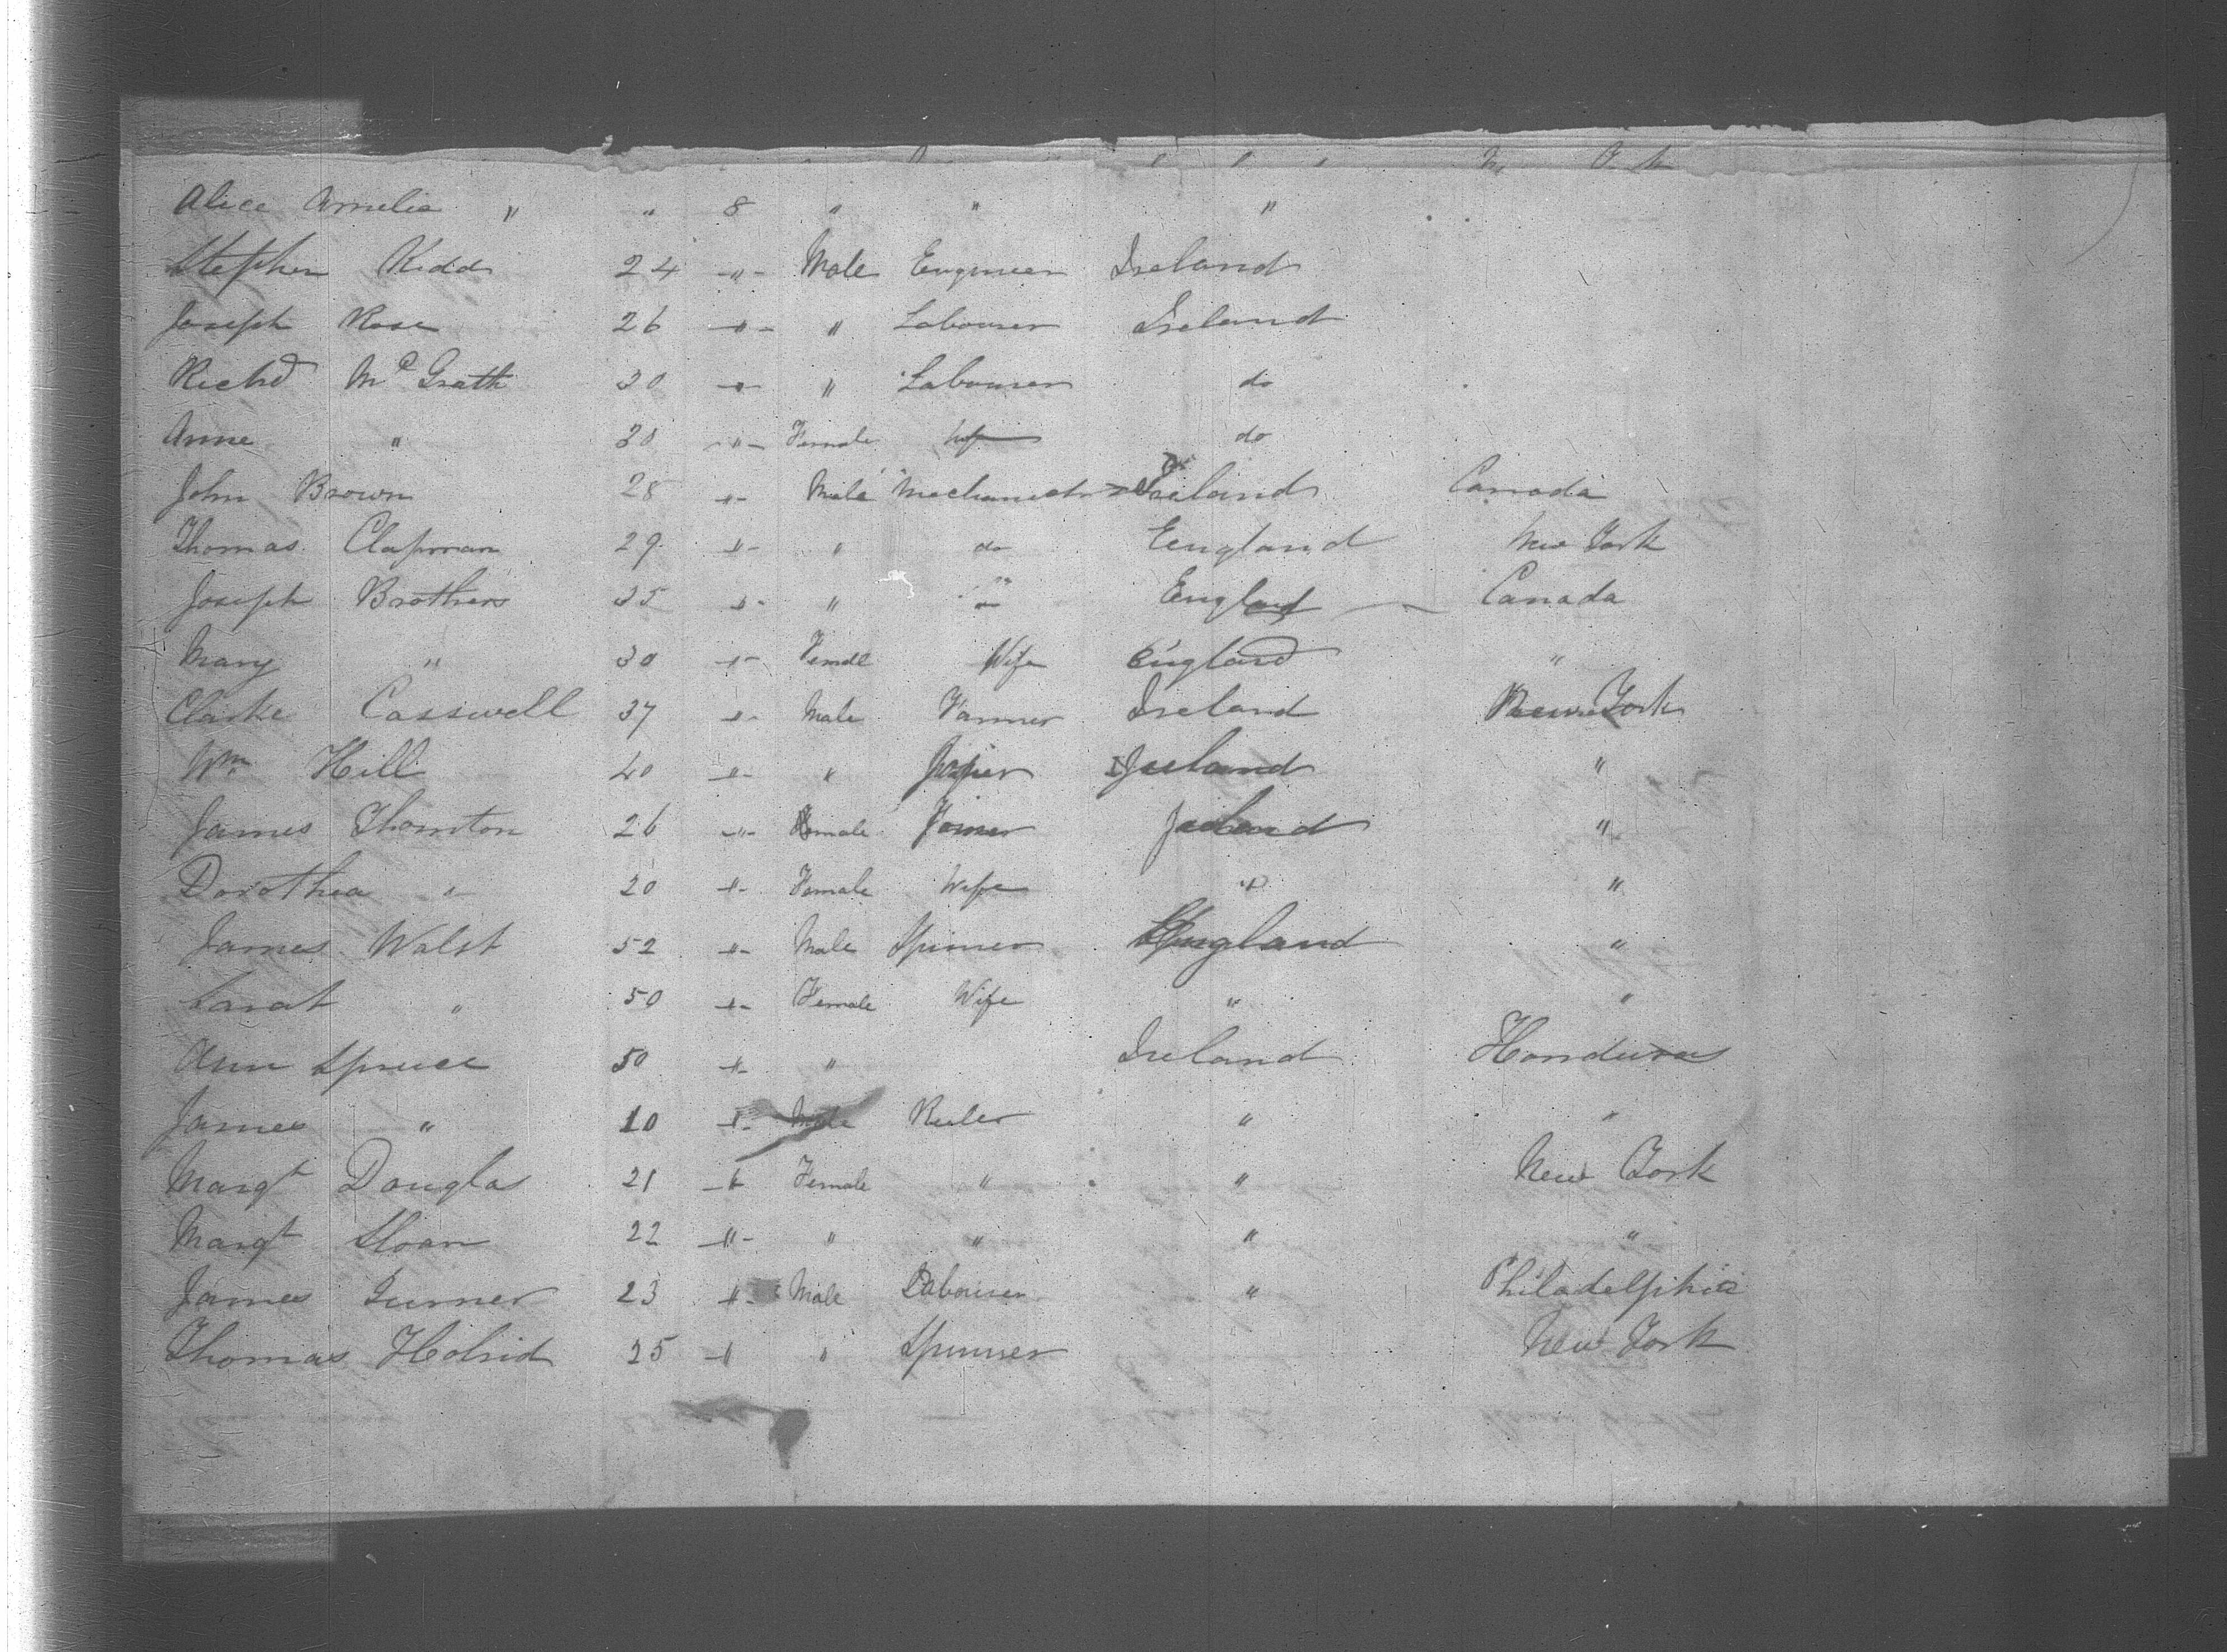 Alice Amelia " " 8 " " "
Stephen Kidd 24 -"- Male Engineer Ireland
Joseph Rose 26 -"- " Labourer Ireland
Richd McGrath 30 -"- " Labourer do
Anne " 30 -"- Female Wife do
John Brown 28 "- Male Mechanich Ireland Canada
Thomas Clapman 29 -"- " do England New York
Joseph Brothers 35 -"- " " England Canada
Mary " 30 -"- Female Wife England "
Clarke Casswell 37 "- Male Farmer Ireland New York
Wm Hill 40 -"- " Ireland "
James Thornton 26 -"- male Joiner Ireland "
Dorothea " 20 -"- Female Wife " "
James Walst 52 -"- Male Spinner England "
Sarah " 50 -"- Female Wife " "
Ann Spruce 50 -"- " Ireland Honduras
James " 10 -"- Male Ruler " "
Margt Douglas 21 -"- Female " " New York
Margt Sloan 22 -"- " " " "
James Turner 23 -"- Male Labourer " Philadelphia
Thomas Holrid 25 -"- " Spinner New York